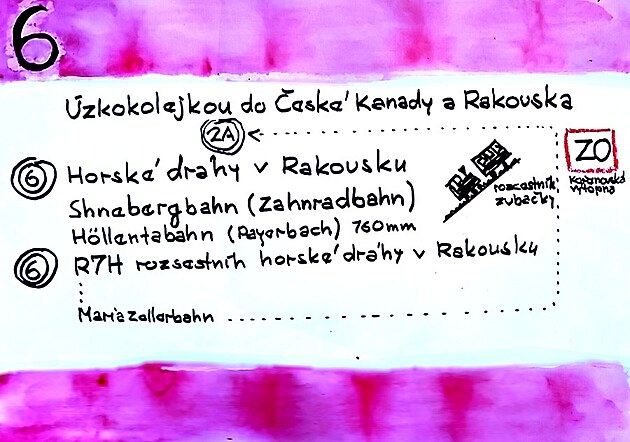 6
Úzkokolejkou do České Kanady a Rakouska
2A
6 Horské dráhy v Rakousku
Shnebergbahn (Zahnradbahn)
Höllentabahn (Payerbach) 760mm
6 R7H rozsestnih horské dráhy v Rakousku
Mariazellerbahn
rozcestník
zubačky
ZO
výtopna